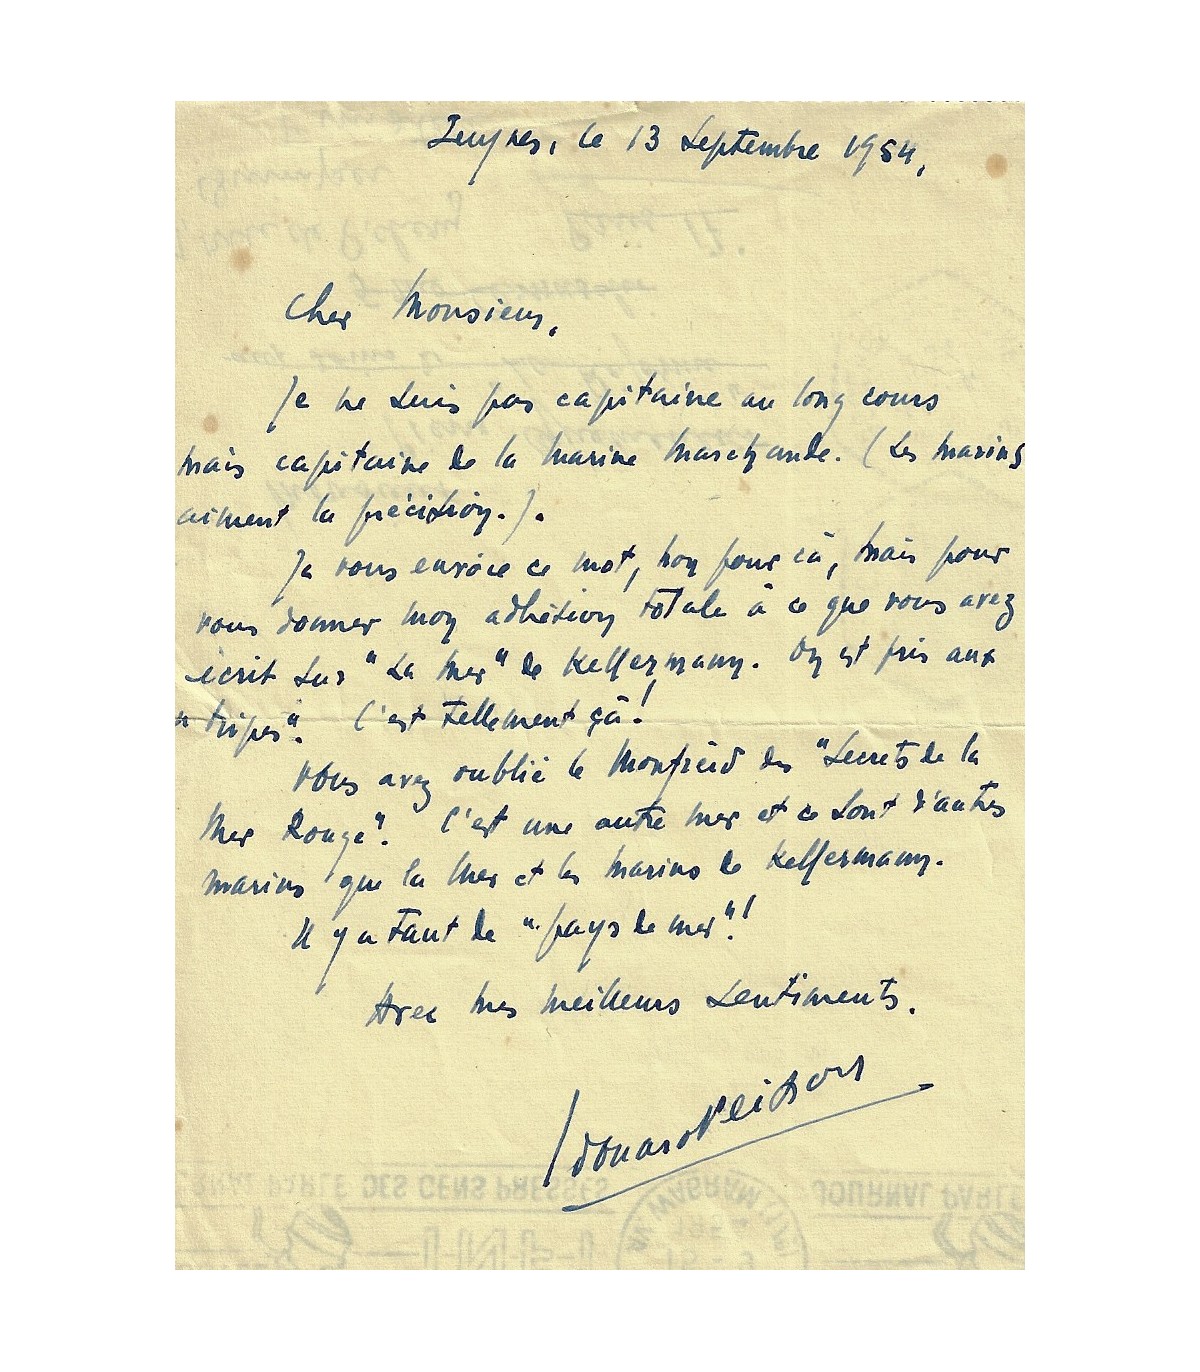 le 13 Septembre 1954,
Cher Monsieur,
Je ne suis pas capitaine au long cours
mais capitaine de la marine marchande. (Les marins
aiment la précision.).
Je vous envoie ce mot, non pour çà, mais pour
vous donner mon adhésion totale à ce que vous avez
écrit sur "La Mer" de Kellermann. On est pris aux
"tripes". C'est tellement çà!
Vous avez oublié le Monfreid des "Secrets de la
Mer Rouge". C'est une autre mer et ce sont d'autres
marins que la mer et les marins de Kellermann.
Il y a tant de "pays de mer"!
Avec mes meilleurs sentiments.
Edouard Peisson
JOURNAL PARLÉ DES GENS PRESSÉS
AV. WAGRAM
JOURNAL PARLÉ